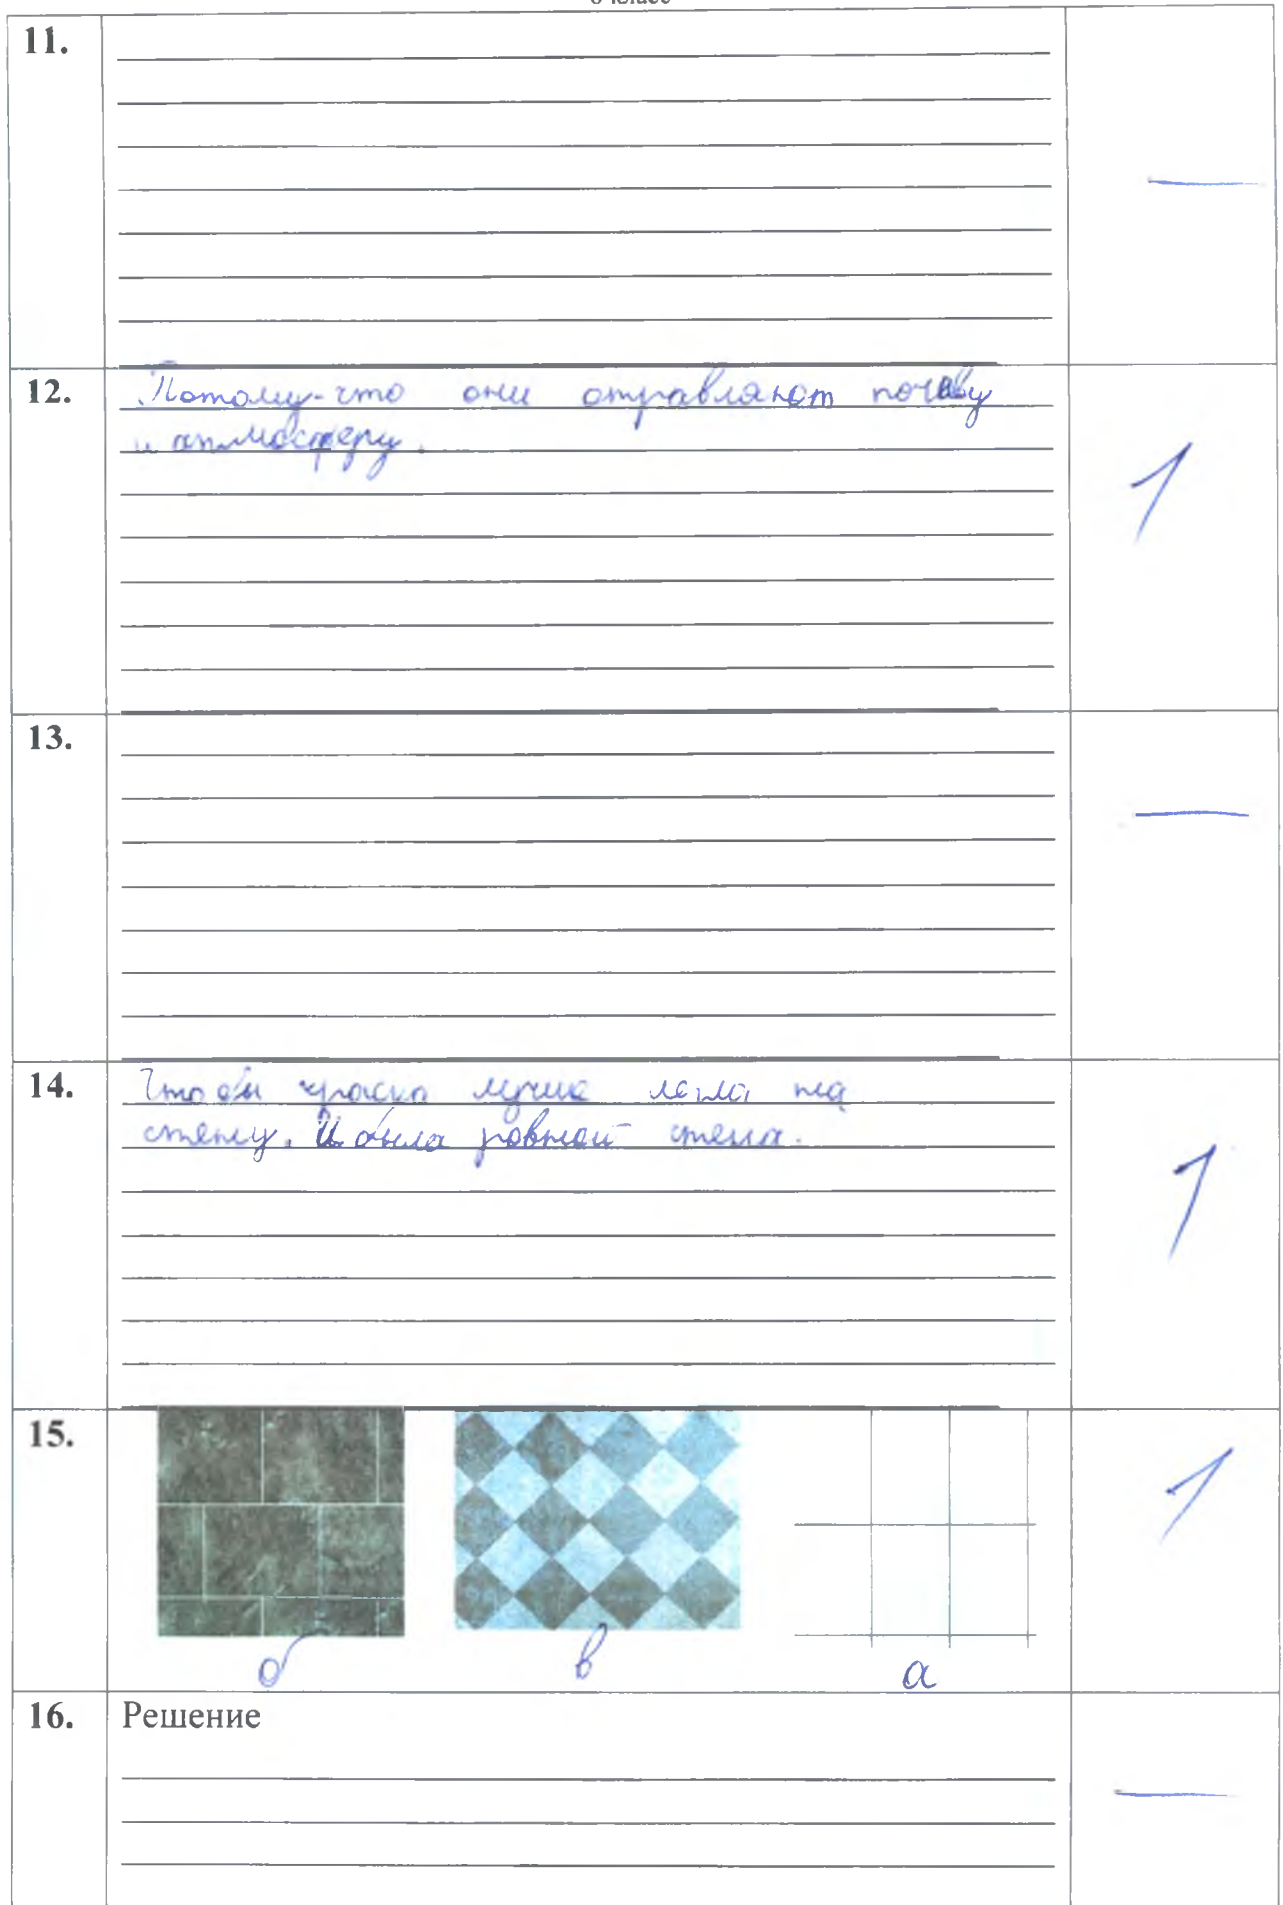 11.
12. Потому-что они отравляют почву
и атмосферу.
1
13.
14. Чтобы краска лучше легла на
стену. И была ровной стена.
1
15.
1
б в а
16. Решение